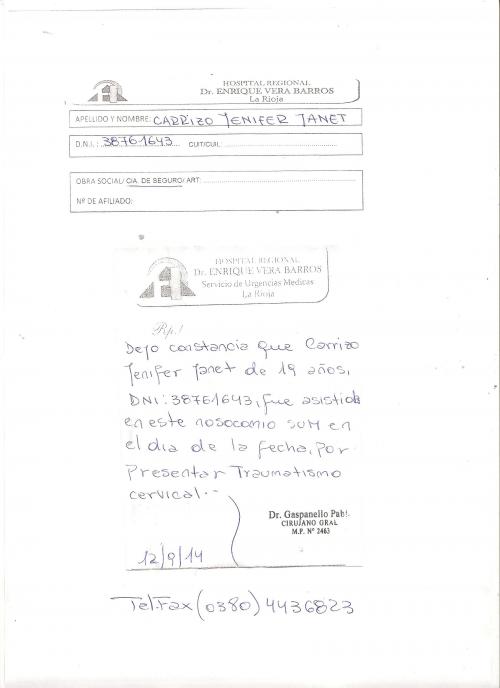 HOSPITAL REGIONAL
Dr. ENRIQUE VERA BARROS
La Rioja
APELLIDO Y NOMBRE: CARRIZO JENIFER JANET
D.N.I.: 38761643 CUIT/CUIL:
OBRA SOCIAL/ CIA. DE SEGURO/ ART:
Nº DE AFILIADO:
HOSPITAL REGIONAL
Dr. ENRIQUE VERA BARROS
Servicio de Urgencias Medicas
La Rioja
Rp./
Dejo constancia que Carrizo
Jenifer Janet de 19 años,
DNI: 38761643, fue asistida
en este nosocomio SUM en
el dia de la fecha, por
presentar Traumatismo
cervical.-
Dr. Gaspanello Pabl
CIRUJANO GRAL
M.P. Nº 2463
12/9/14
Tel.Fax (0380) 4436823